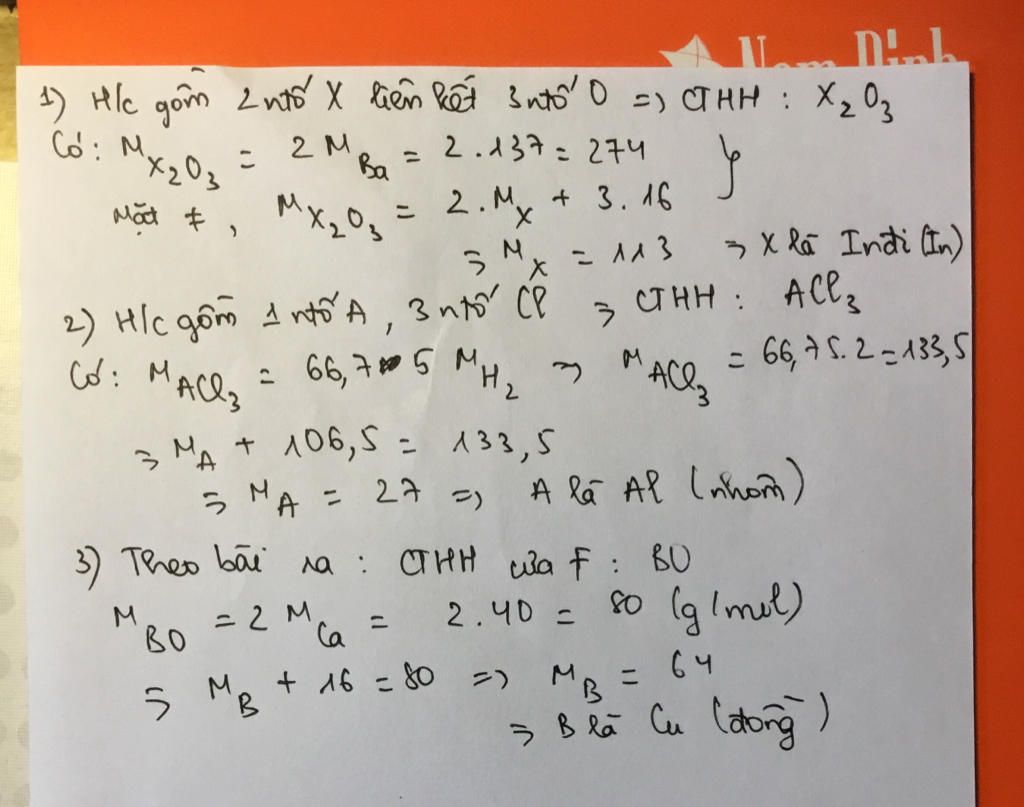 Nam Định
1) H/c gồm 2 ntố X liên kết 3 ntố O => CTHH : X₂O₃
Có: M_X₂O₃ = 2 M_Ba = 2.137 = 274 }
Mặt ≠, M_X₂O₃ = 2.M_X + 3.16
=> M_X = 113 => X là Inđi (In)
2) H/c gồm 1 ntố A, 3 ntố Cl => CTHH : ACl₃
Có: M_ACl₃ = 66,75 M_H₂ => M_ACl₃ = 66,75.2 = 133,5
=> M_A + 106,5 = 133,5
=> M_A = 27 => A là Al (nhôm)
3) Theo bài ra : CTHH của F : BO
M_BO = 2 M_Ca = 2.40 = 80 (g/mol)
=> M_B + 16 = 80 => M_B = 64
=> B là Cu (đồng)